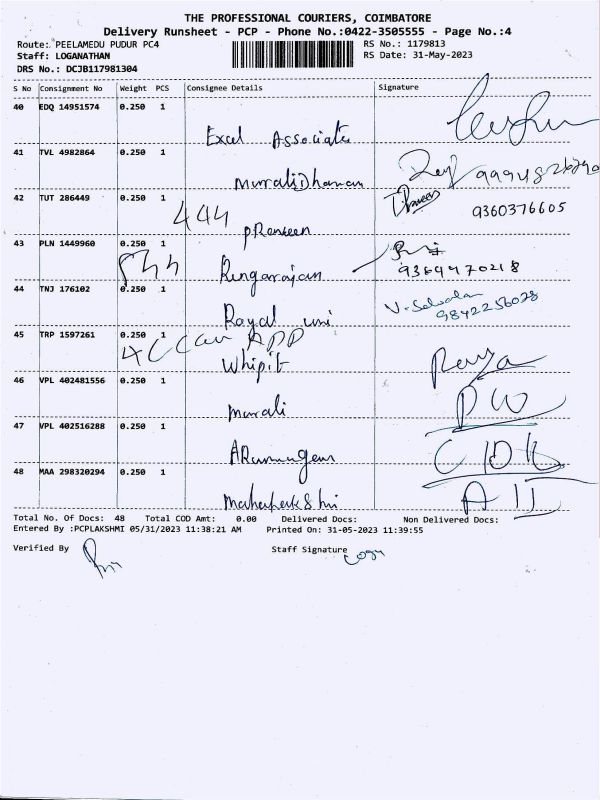 THE PROFESSIONAL COURIERS, COIMBATORE
Delivery Runsheet - PCP - Phone No.:0422-3505555 - Page No.:4
Route: PEELAMEDU PUDUR PC4 RS No.: 1179813
Staff: LOGANATHAN RS Date: 31-May-2023
DRS No.: DCJB117981304
S No Consignment No Weight PCS Consignee Details Signature
40 EDQ 14951574 0.250 1
Excel Associate
41 TVL 4982864 0.250 1
MuraliDharan
42 TUT 286449 0.250 1 9360376605
444 pRaveen
43 PLN 1449960 0.250 1
Rengarajan 9364470218
44 TNJ 176102 0.250 1
Royal uni 9842256028
45 TRP 1597261 0.250 1
Whipit
46 VPL 402481556 0.250 1
murali
47 VPL 402516288 0.250 1
ARumugam
48 MAA 298320294 0.250 1
Total No. Of Docs: 48 Total COD Amt: 0.00 Delivered Docs: Non Delivered Docs:
Entered By :PCPLAKSHMI 05/31/2023 11:38:21 AM Printed On: 31-05-2023 11:39:55
Verified By Staff Signature